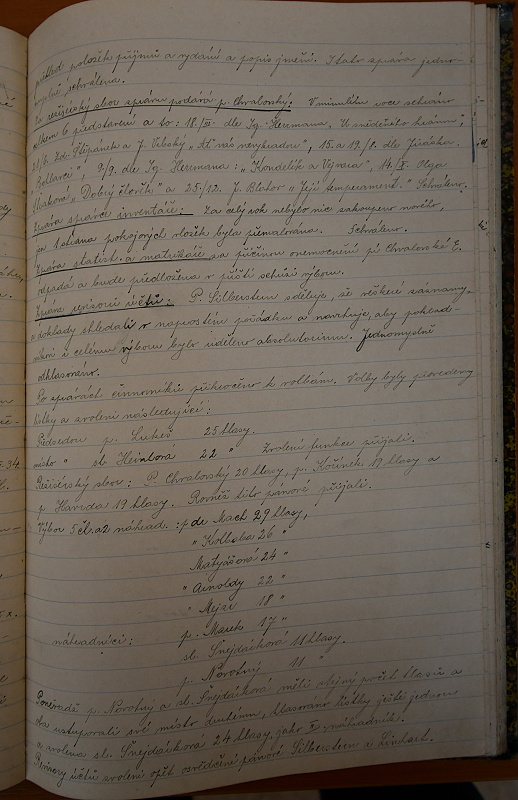 přehled položek příjmů a vydání a popis jmění. Tato zpráva jedno-
myslně schválena.
Za režisérský sbor zprávu podává p. Chvalovský: V minulém roce sehráno
celkem 6 představení a to: 18/III. dle Ig. Herrmana.
21/6. Zdr. Štěpánek a J. Vrbský „Ať nás nevyhodí“, 15. a 19./8. dle Jiráska.
9/9. dle Ig. Herrmana: „Kondelík a Vejvara“, 14./X. Olga
„Dobrý člověk“ a 25./12. J. Blator „Její temperament.“ Schváleno.
Zpráva správce inventáře: Za celý rok nebylo nic zakoupeno nového,
jen 1 strana pokojových vložek byla přemalována. Schváleno.
Zpráva statist. a matrikáře za příčinou onemocnění pí Chvalovské E.
odpadá a bude předložena v příští schůzi výboru.
Zpráva revisorů účtů: P. Silberstein sděluje, že veškeré záznamy
a doklady shledali v naprostém pořádku a navrhuje, aby poklad-
níkovi i celému výboru bylo uděleno absolutorium. Jednomyslně
odhlasováno.
Po zprávách činovníků přikročeno k volbám. Volby byly provedeny
lístky a zvoleni následující:
Předsedou p. Lukeš 25 hlasy.
místo „ sl. Heinlová 22 „ Zvolení funkce přijali.
Režisérský sbor: P. Chvalovský 20 hlasy, p. Kořínek 19 hlasy a
p. Havrda 19 hlasy. Rovněž tito pánové přijali.
Výbor 5 čl. a 2 náhrad.: p. de Mach 29 hlasy,
„ Kolbaba 26 „
Matyášová 24 „
„ Arnoldy 22 „
„ Mejsr 18 „
náhradníci: p. Marek 17 „
sl. Šnejdaříková 11 hlasy.
p. Novotný 11 „
Poněvadž p. Novotný a sl. Šnejdaříková měli stejný počet hlasů a
oba ustupovali své místo druhému, hlasováno lístky ještě jednou
a zvolena sl. Šnejdaříková 24 hlasy, jako II. náhradník.
Revisory účtů zvoleni opět osvědčení pánové Silberstein a Linhart.